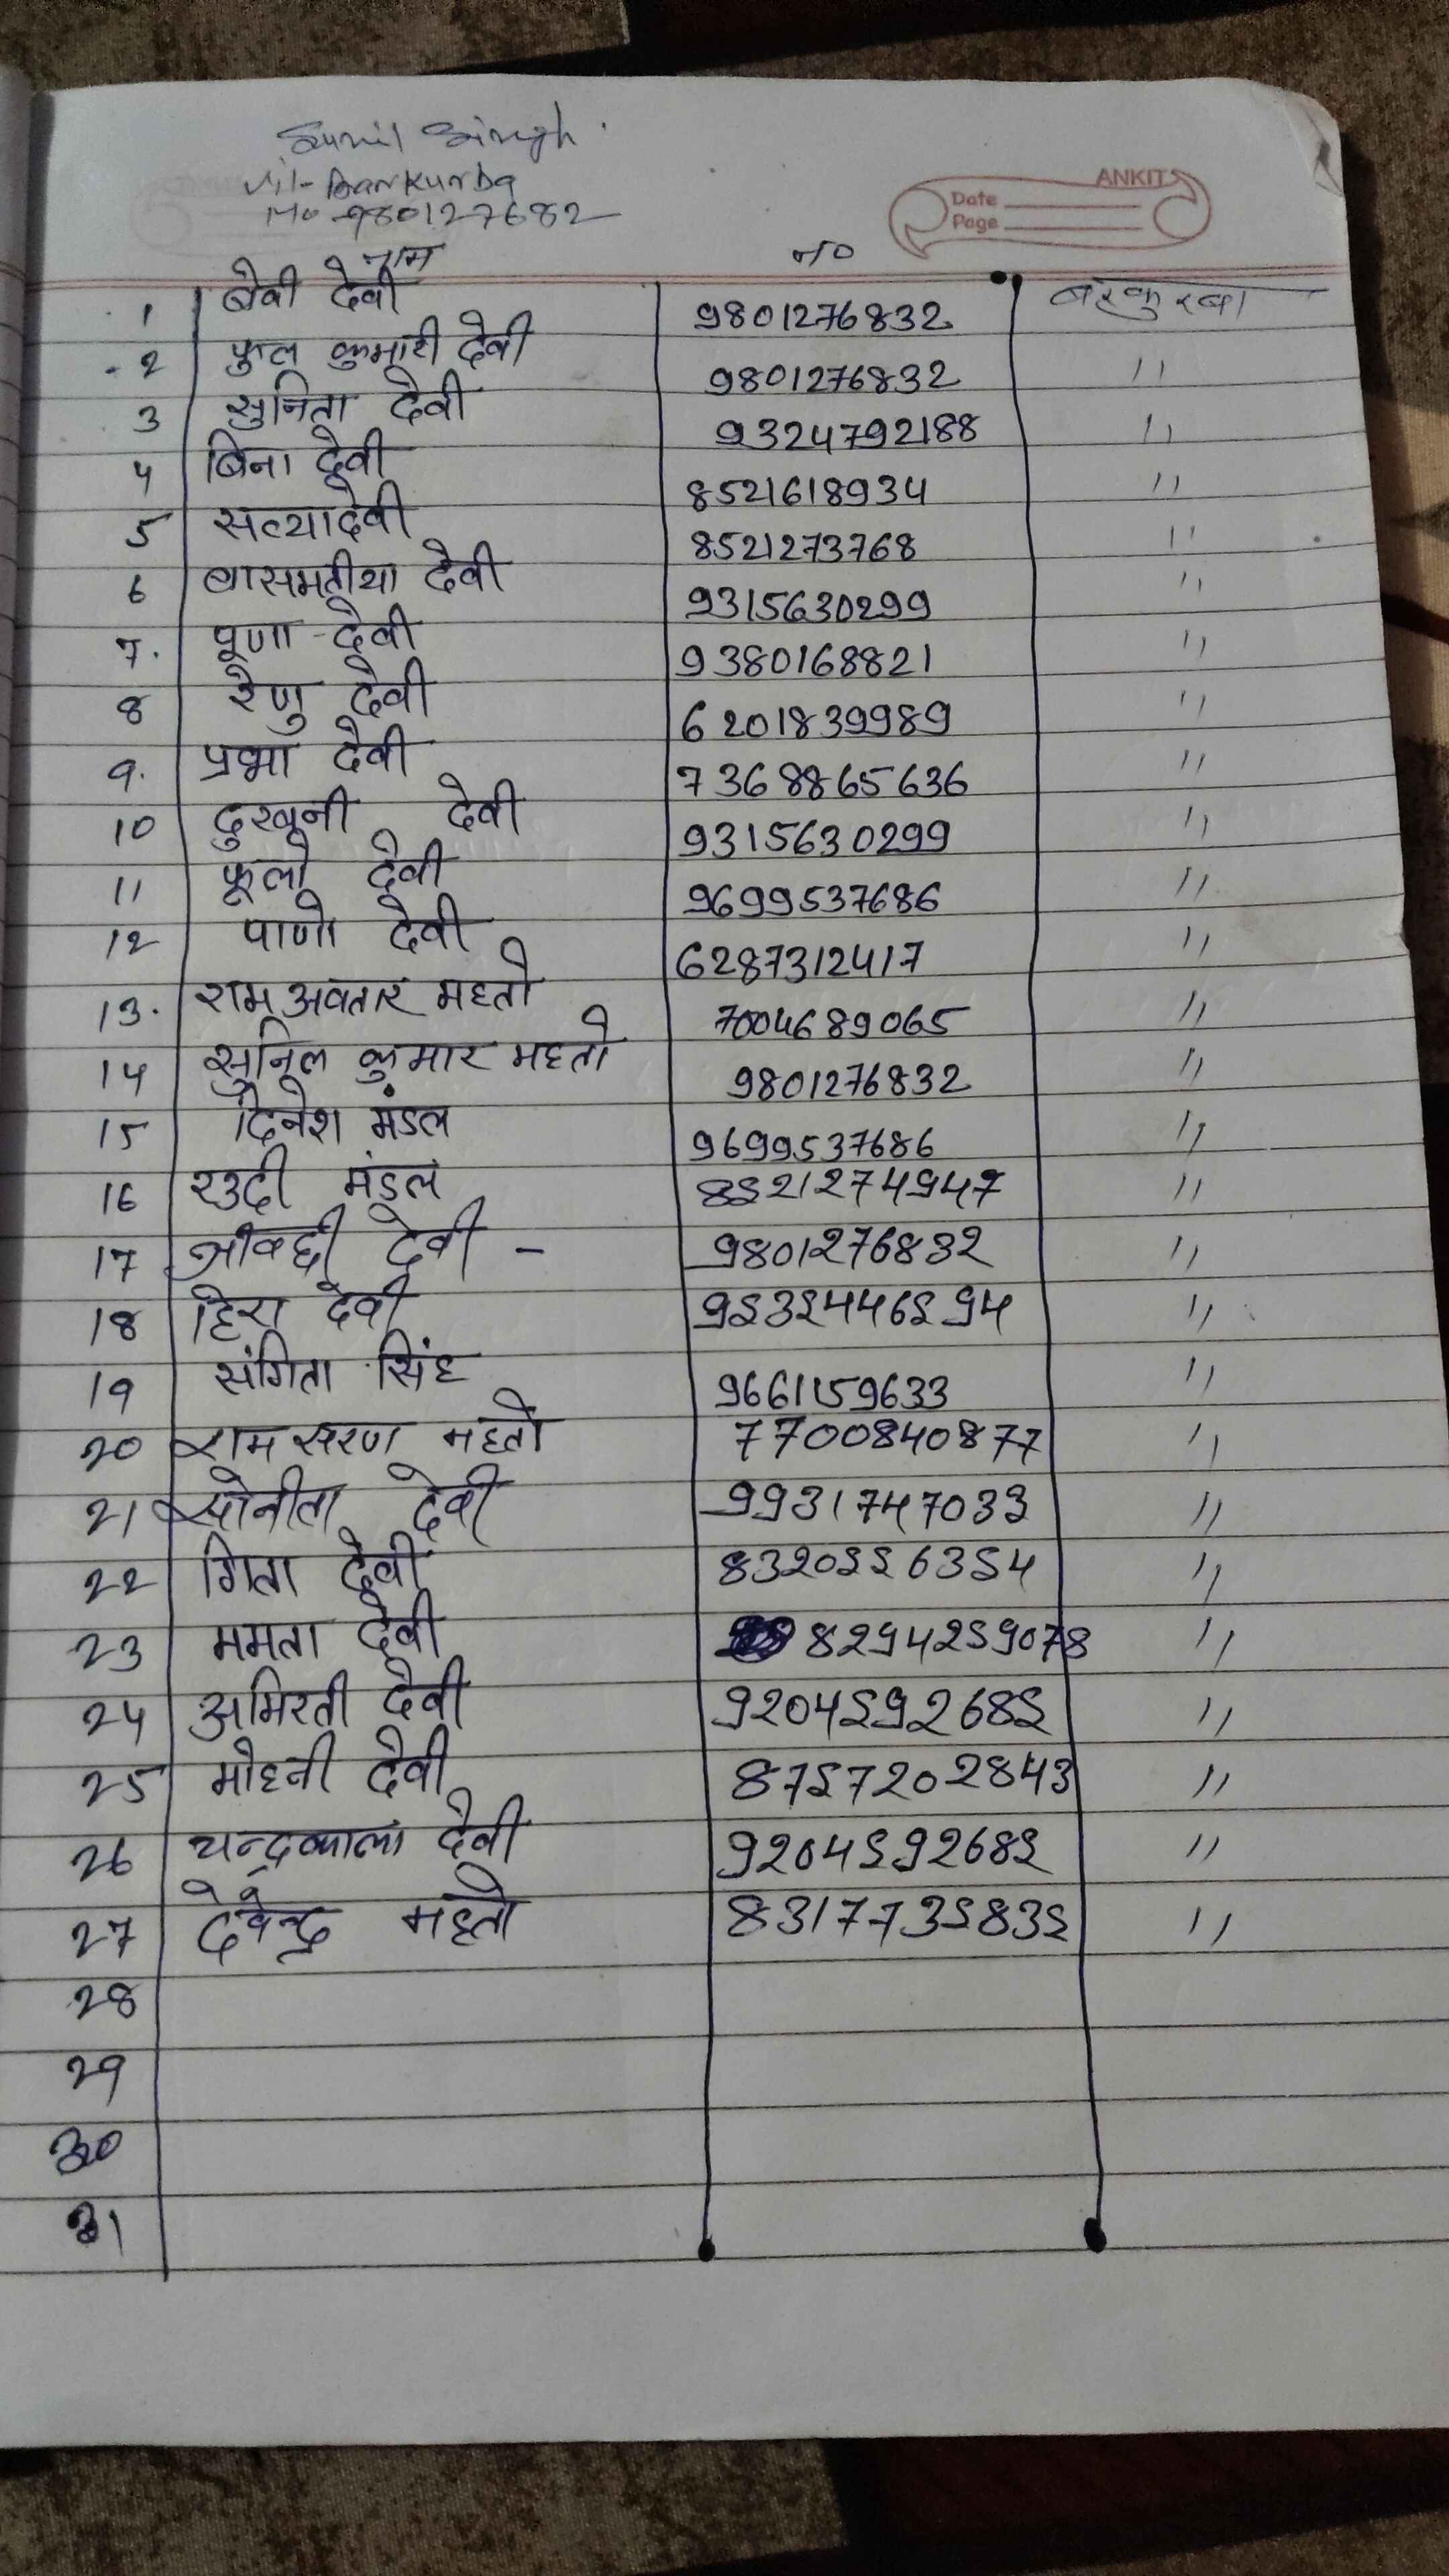 Sunil Singh
Vil- Barkurba
Mo -980127682
ANKIT
Date
Page
नाम no
1 बेवी देवी 9801276832 बरकुरबा
2 फुल कुमारी देवी 9801276832 ''
3 सुनिता देवी 9324792188 ''
4 बिना देवी 8521618934 ''
5 सत्यादेवी 8521273768 ''
6 बासमतीया देवी 9315630299 ''
7. पूणा देवी 9380168821 ''
8 रेणु देवी 6201839989 ''
9. प्रभा देवी 7368865636 ''
10 दुखनी देवी 9315630299 ''
11 फूलो देवी 9699537686 ''
12 पाणो देवी 6287312417 ''
13. राम अवतार महतो 7004689065 ''
14 सुनिल कुमार महतो 9801276832 ''
15 दिनेश मंडल 9699537686 ''
16 रउदी मंडल 8521274947 ''
17 देवी - 9801276832 ''
18 हिरा देवी 9535446594 ''
19 संगिता सिंह 9661159633 ''
20 राम सरण महतो 7700840877 ''
21 सोनीता देवी 9931747033 ''
22 गिता देवी 8320556354 ''
23 ममता देवी 8294259078 ''
24 अमिरती देवी 9204592685 ''
25 मोहनी देवी 8757202843 ''
26 चन्द्रकाला देवी 9204592685 ''
27 देवेन्द्र महतो 8317735835 ''
28
29
30
31